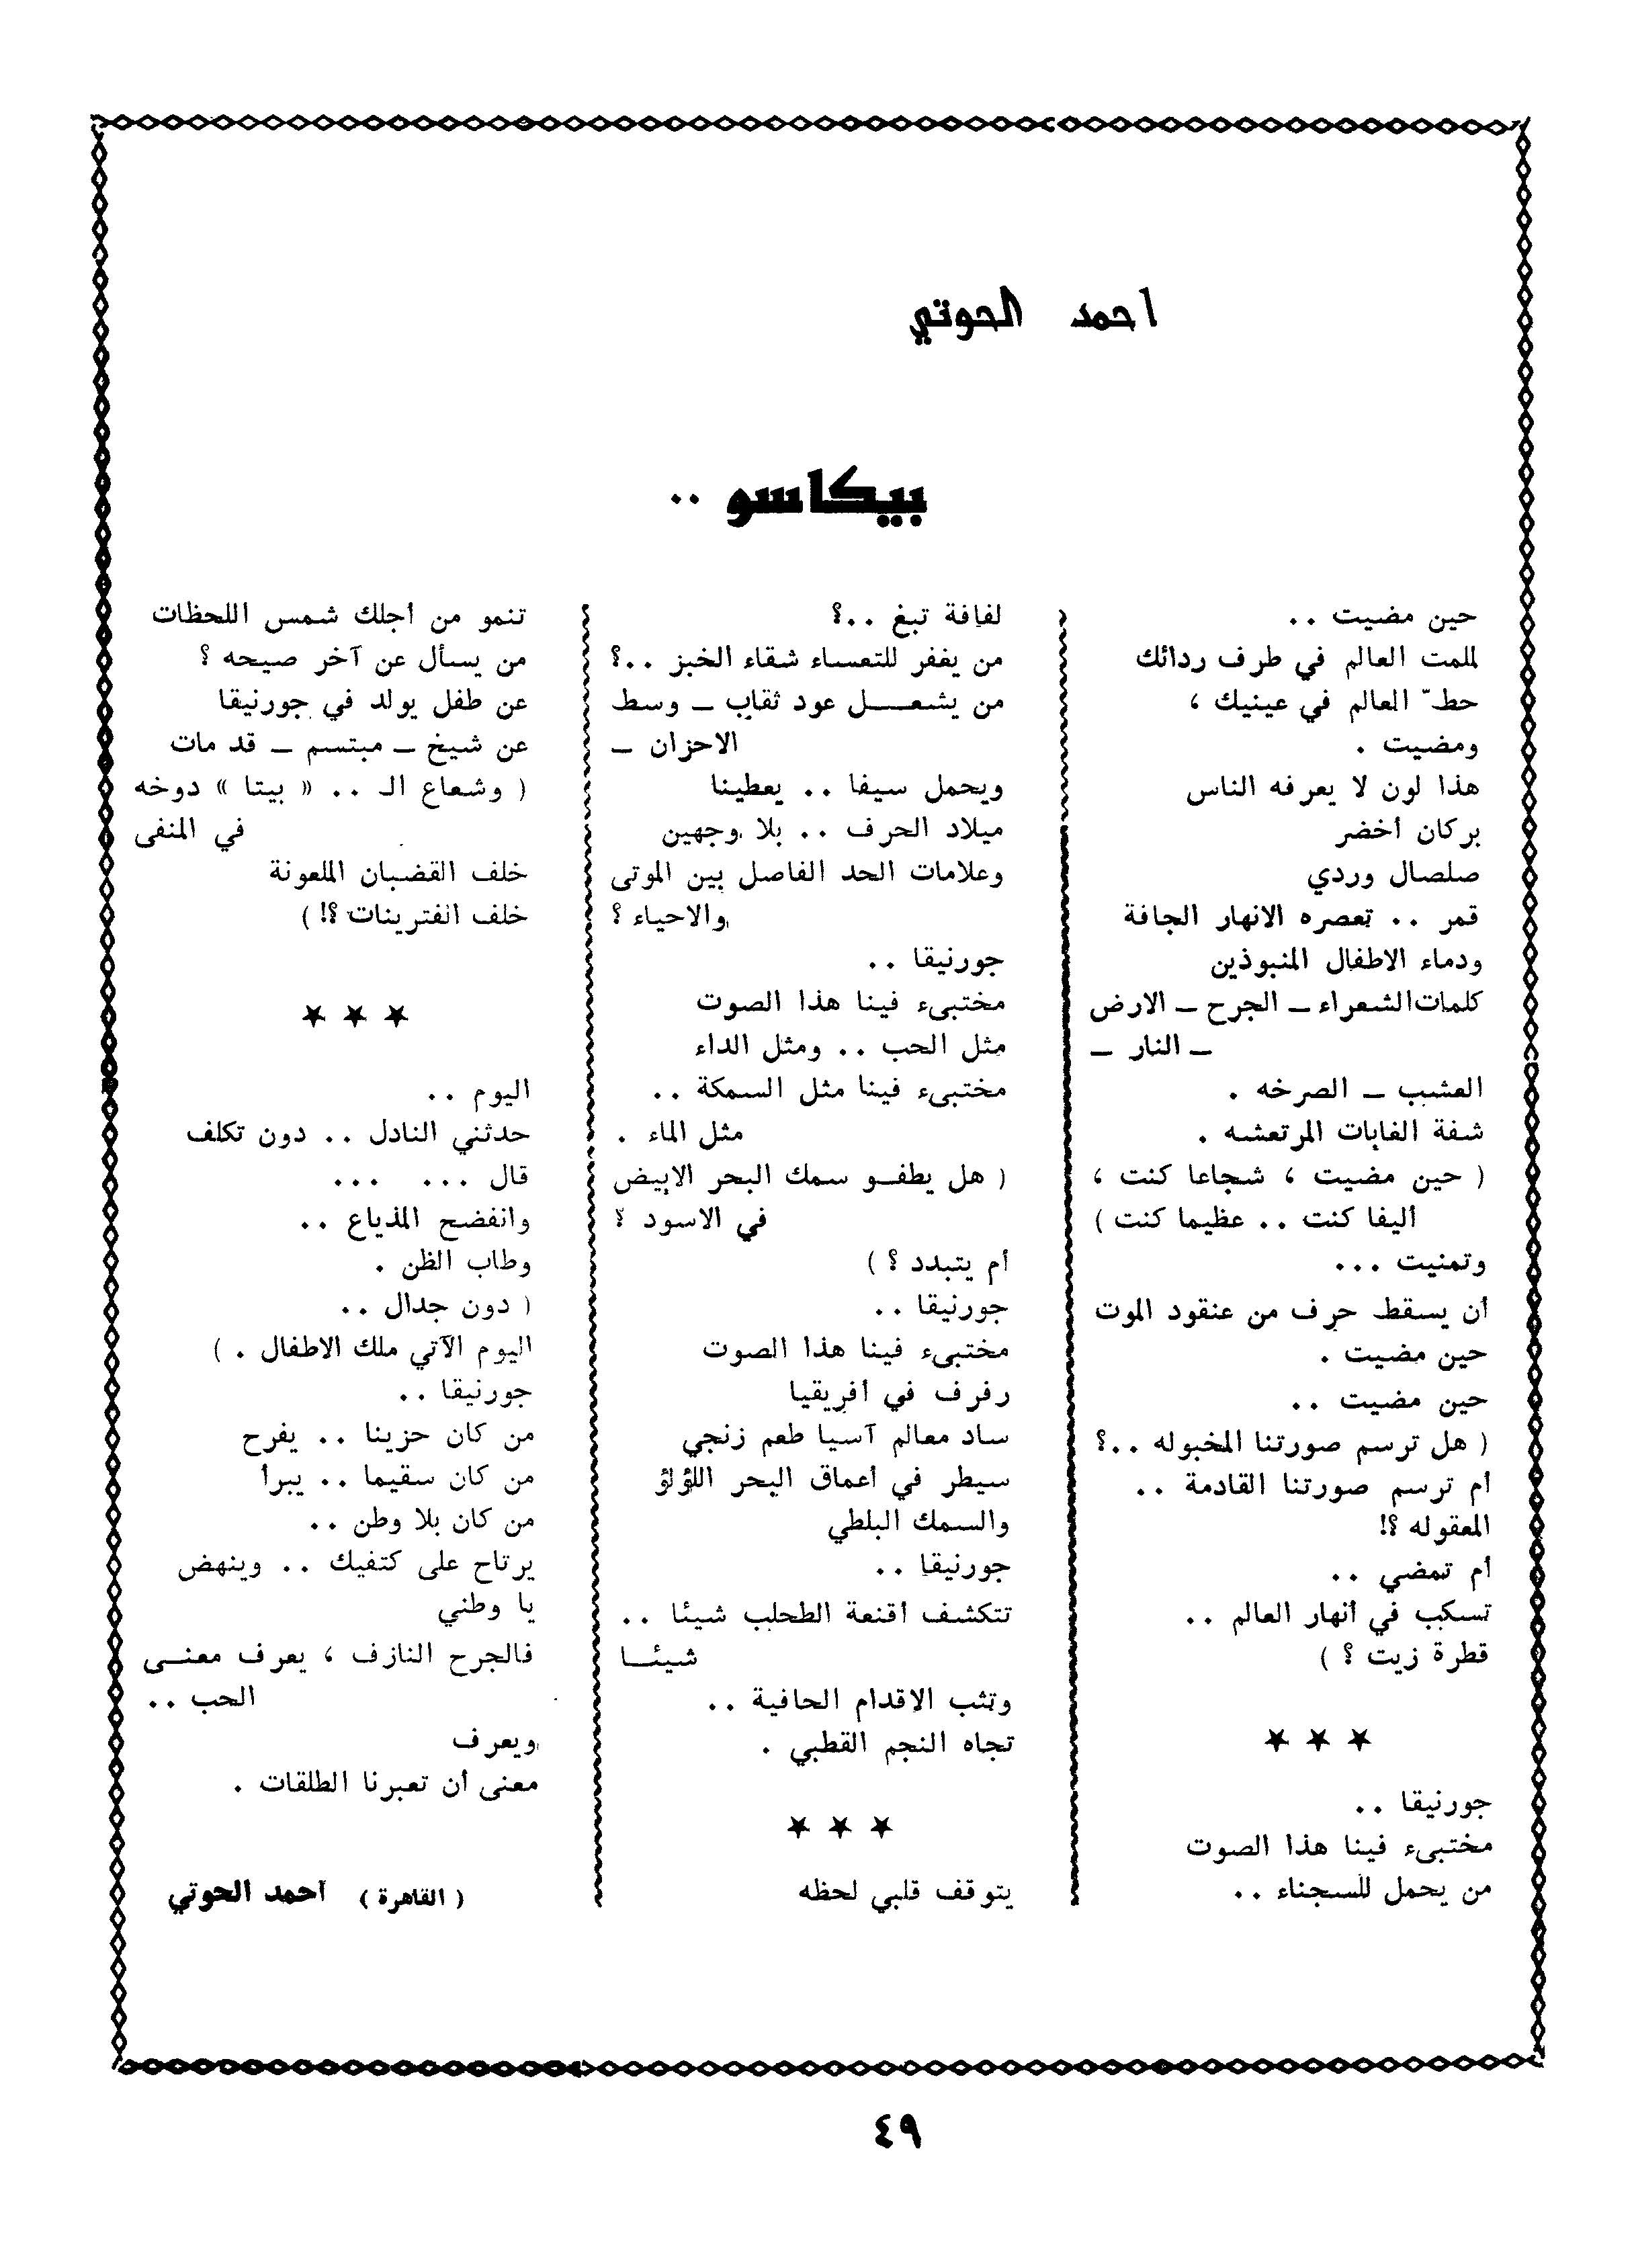 احمد الحوتي
بيكاسو ..
حين مضيت ..
لملمت العالم في طرف ردائك
حطّ العالم في عينيك ،
ومضيت .
هذا لون لا يعرفه الناس
بركان أخضر
صلصال وردي
قمر .. تعصره الانهار الجافة
ودماء الاطفال المنبوذين
كلمات الشعراء ــ الجرح ــ الارض
ــ النار ــ
العشب ــ الصرخه .
شفة الغابات المرتعشه .
( حين مضيت ، شجاعا كنت ،
أليفا كنت .. عظيما كنت )
وتمنيت ...
أن يسقط حرف من عنقود الموت
حين مضيت .
حين مضيت ..
( هل ترسم صورتنا المخبوله ..؟
أم ترسم صورتنا القادمة ..
المعقوله ؟!
أم تمضي ..
تسكب في أنهار العالم ..
قطرة زيت ؟ )
★ ★ ★
جورنيقا ..
مختبىء فينا هذا الصوت
من يحمل للسجناء ..
لفافة تبغ ..؟
من يغفر للتعساء شقاء الخبز ..؟
من يشعــــل عود ثقاب ــ وسط
الاحزان ــ
ويحمل سيفا .. يعطينا
ميلاد الحرف .. بلا وجهين
وعلامات الحد الفاصل بين الموتى
والاحياء ؟
جورنيقا ..
مختبىء فينا هذا الصوت
مثل الحب .. ومثل الداء
مختبىء فينا مثل السمكة ..
مثل الماء .
( هل يطفــو سمك البحر الابيض
في الاسود ؟
أم يتبدد ؟ )
جورنيقا ..
مختبىء فينا هذا الصوت
رفرف في أفريقيا
ساد معالم آسيا طعم زنجي
سيطر في أعماق البحر اللؤلؤ
والسمك البلطي
جورنيقا ..
تتكشف أقنعة الطحلب شيئا ..
شيئــا
وتثب الاقدام الحافية ..
تجاه النجم القطبي .
★ ★ ★
يتوقف قلبي لحظه
تنمو من أجلك شمس اللحظات
من يسأل عن آخر صيحه ؟
عن طفل يولد في جورنيقا
عن شيخ ــ مبتسم ــ قد مات
( وشعاع الـ .. « بيتا » دوخه
في المنفى
خلف القضبان الملعونة
خلف الفترينات ؟! )
★ ★ ★
اليوم ..
حدثني النادل .. دون تكلف
قال ... ...
وانفضح المذياع ..
وطاب الظن .
( دون جدال ..
اليوم الآتي ملك الاطفال . )
جورنيقا ..
من كان حزينا .. يفرح
من كان سقيما .. يبرأ
من كان بلا وطن ..
يرتاح على كتفيك .. وينهض
يا وطني
فالجرح النازف ، يعرف معنــى
الحب ..
ويعرف
معنى أن تعبرنا الطلقات .
( القاهرة ) أحمد الحوتي
٤٩